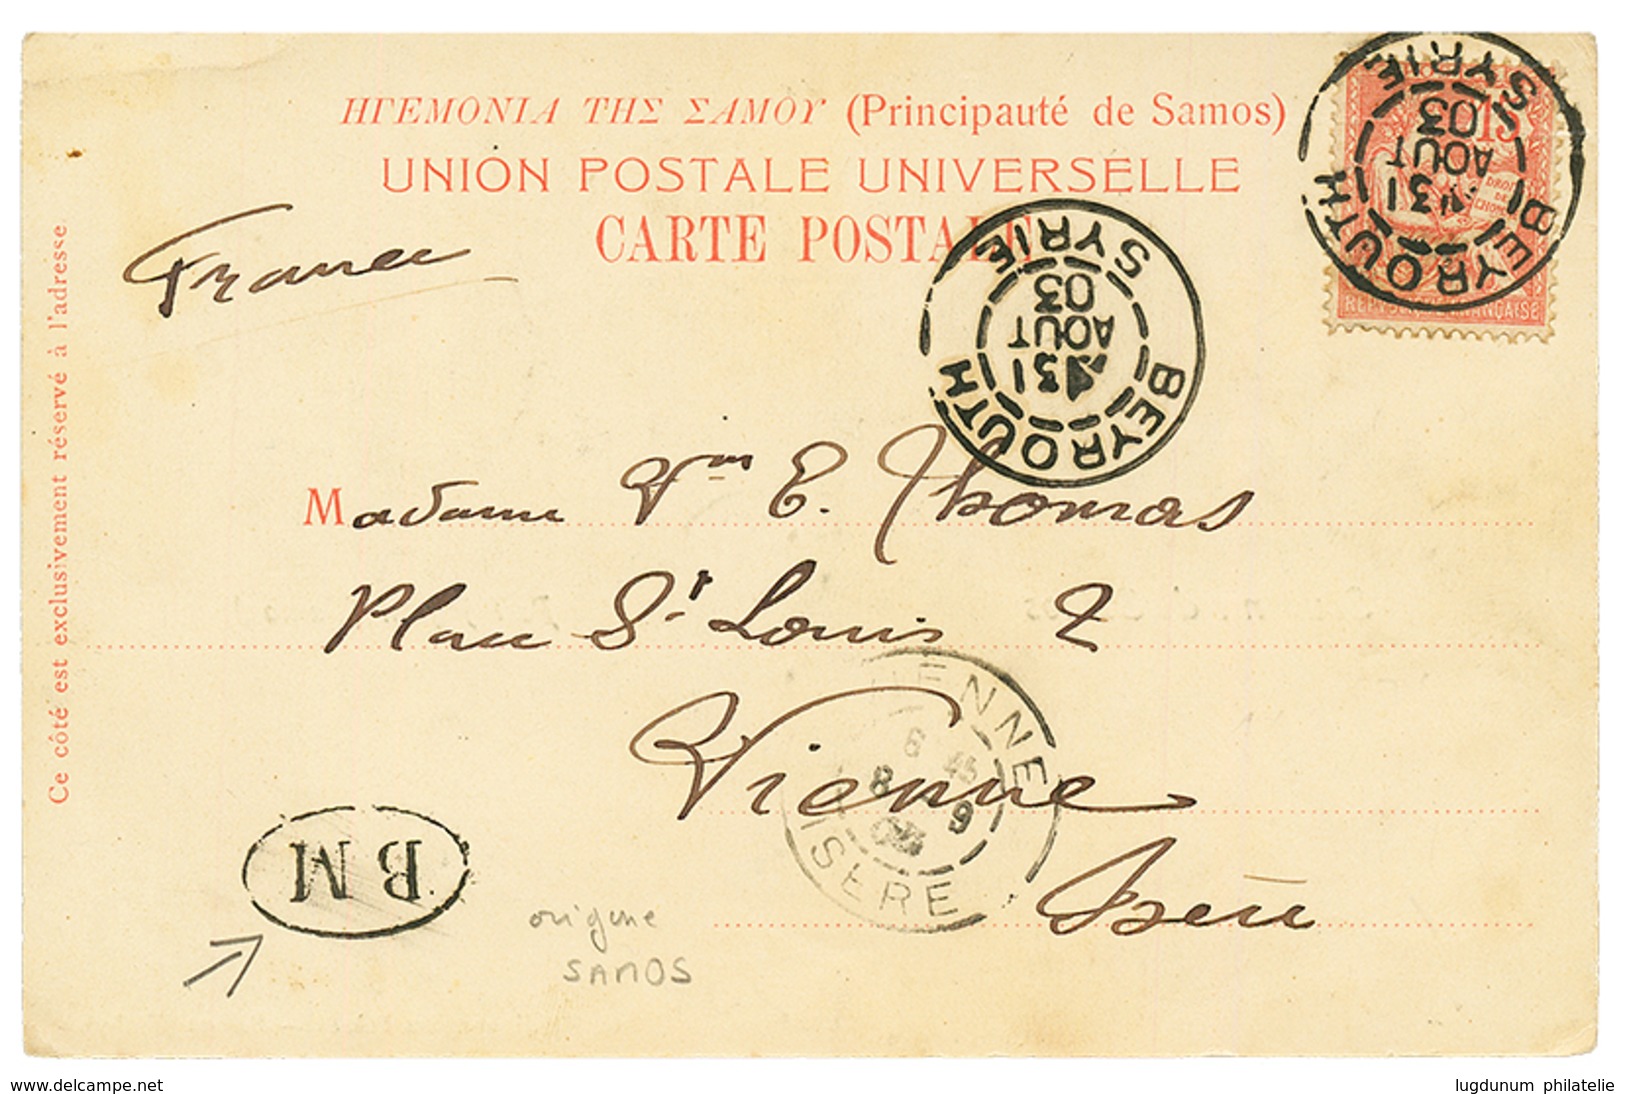 ΗΓΕΜΟΝΙΑ ΤΗΣ ΣΑΜΟΥ (Principauté de Samos)
UNION POSTALE UNIVERSELLE
CARTE POSTALE
Ce côté est exclusivement réservé à l'adresse
France
15
DROIT
DE
REPUBLIQUE FRANÇAISE
BEYROUTH
31
AOUT
03
SYRIE
BEYROUTH
31
AOUT
03
SYRIE
Madame Vve E. Thomas
Place St Louis 2
Vienne
Isère
VIENNE
6 45
8 9
03
ISERE
B M
origine
SAMOS
www.delcampe.net
lugdunum philatelie